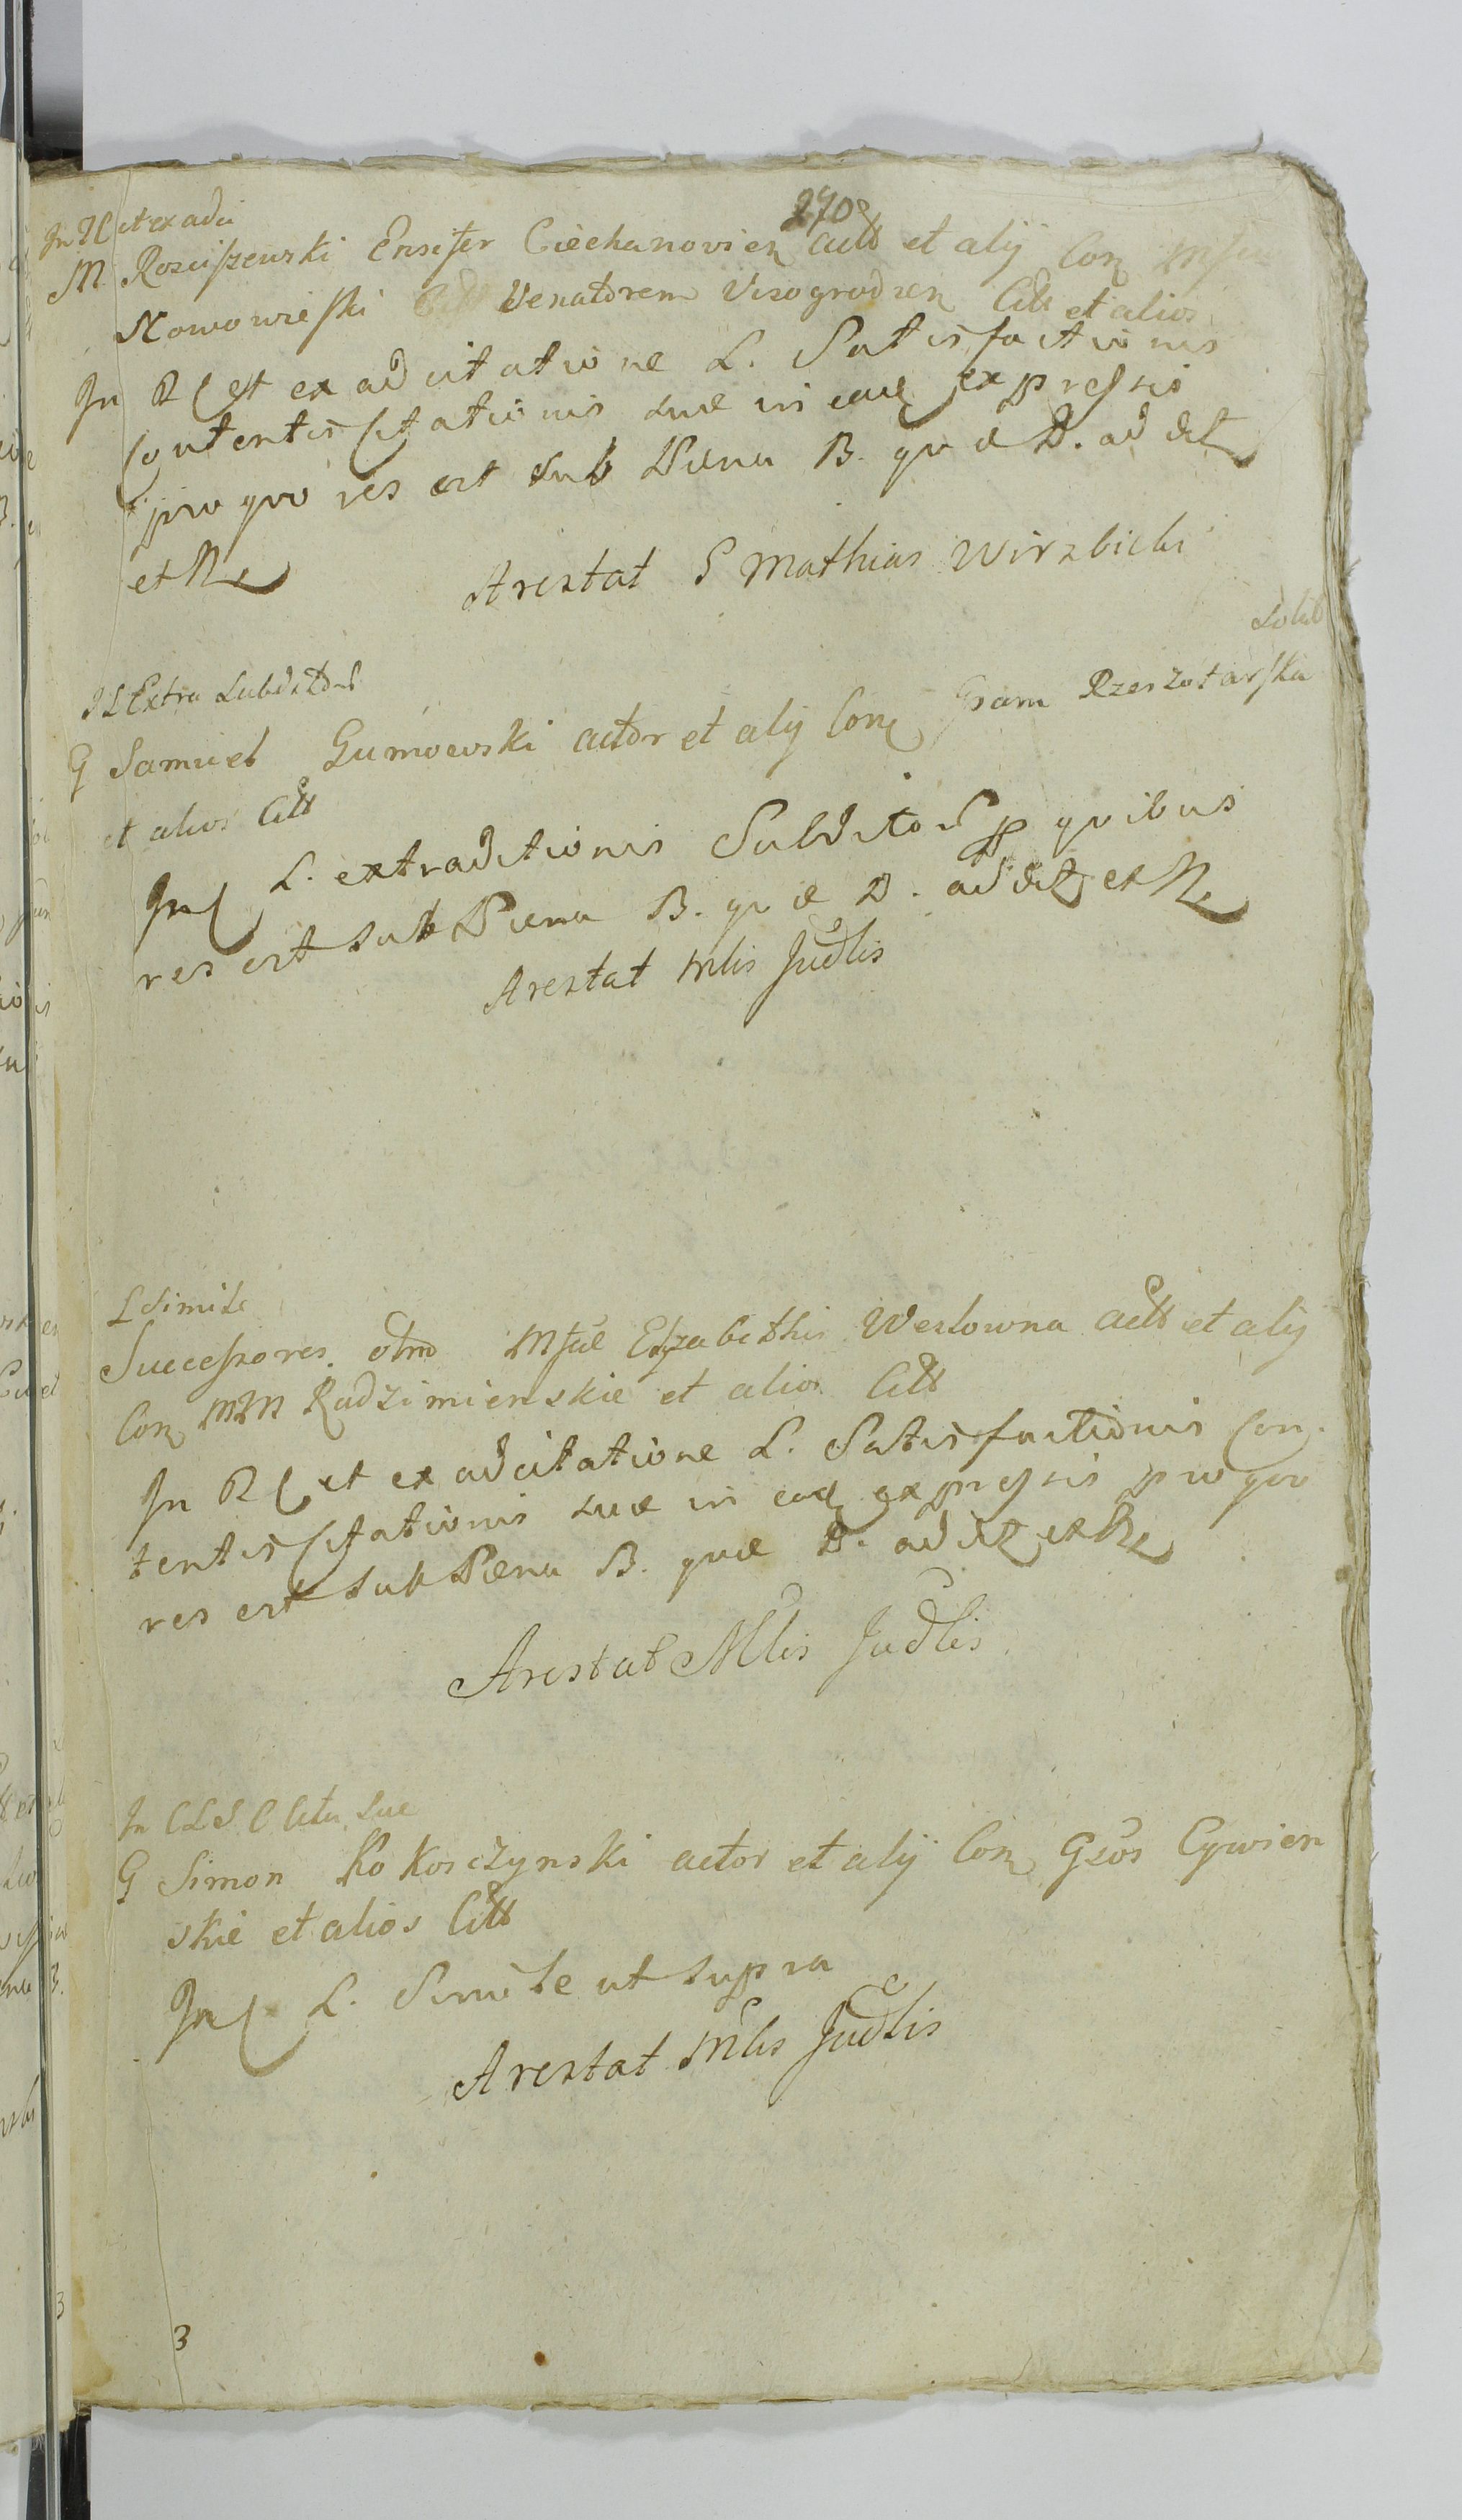 270
In R C et ex adci
M Rosciszewski Ensifer Ciechanovien actt et alij Con
Nowowieski Venatorem Visogrodzen Citt et alios
In R C et ex adcitatione L. Satisfactionis
Contentis Citationis suæ in eaq expressis
pro quo res est sub Pæna B. quæ D. addet
et Re
Arestat P Mathias Wirzbicki
L Extra Subditor
G Samuel Gumowski actor et alij Con Gsam Rzeszotarska
et alios Citt
In C L. extraditionis Subditor p quibus
res est sub Pæna B. quæ D. addet et Re
Arestat Mlis Judlis
L Simile
Successores olim Msæ Elzabethis Weslowna actt et alij
Con MM Radzimienskie et alios Citt
In R C et ex adcitatione L. Satisfactionis Con
tentis Citationis suæ in eaq expressis pro quo
res est sub Pæna B. quæ D. addet et Re
Arestat Mlis Judlis
In C L S C
G Simon Kokosczynski actor et alij Con Gsos Cywien
skie et alios Citt
In C L. Simile ut supra
Arestat Mlis Judlis
3